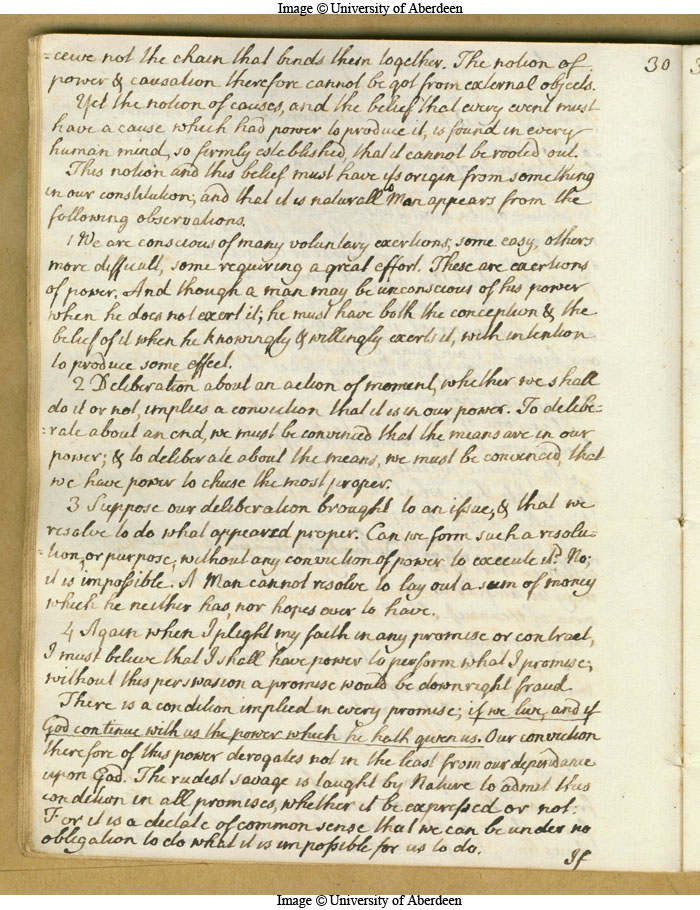 Image © University of Aberdeen
30
=ceive not the chain that binds them together. The notion of
power & causation therefore cannot be got from external objects.
Yet the notion of causes, and the belief that every event must
have a cause which had power to produce it, is found in every
human mind, so firmly established, that it cannot be rooted out.
This notion and this belief must have its origin from something
in our constitution; and that it is naturall to Man appears from the
following observations.
1 We are conscious of many voluntary exertions, some easy, others
more difficult, some requiring a great effort. These are exertions
of power. And though a man may be unconscious of his power
when he does not exert it; he must have both the conception & the
belief of it when he knowingly & willingly exerts it, with intention
to produce some effect.
2 Deliberation about an action of moment, whether we shall
do it or not, implies a conviction that it is in our power. To delibe-
=rate about an end, we must be convinced that the means are in our
power; & to deliberate about the means, we must be convinced, that
we have power to chuse the most proper.
3 Suppose our deliberation brought to an issue, & that we
resolve to do what appeared proper. Can we form such a resolu-
=tion, or purpose, without any conviction of power to execute it? No;
it is impossible. A Man cannot resolve to lay out a sum of money
which he neither has, nor hopes ever to have.
4 Again when I plight my faith in any promise or contract,
I must believe that I shall have power to perform what I promise;
without this perswasion a promise would be downright fraud
There is a condition implied in every promise; if we live, and if
God continue with us the power which he hath given us. Our conviction
therefore of this power derogates not in the least from our dependance
upon God. The rudest savage is taught by Nature to admit this
condition in all promises, whether it be expressed or not:
For it is a dictate of common sense that we can be under no
obligation to do what it is impossible for us to do.
If
Image © University of Aberdeen